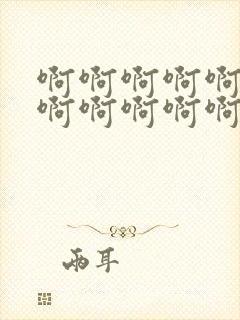 啊啊啊啊啊
啊啊啊啊啊
两耳